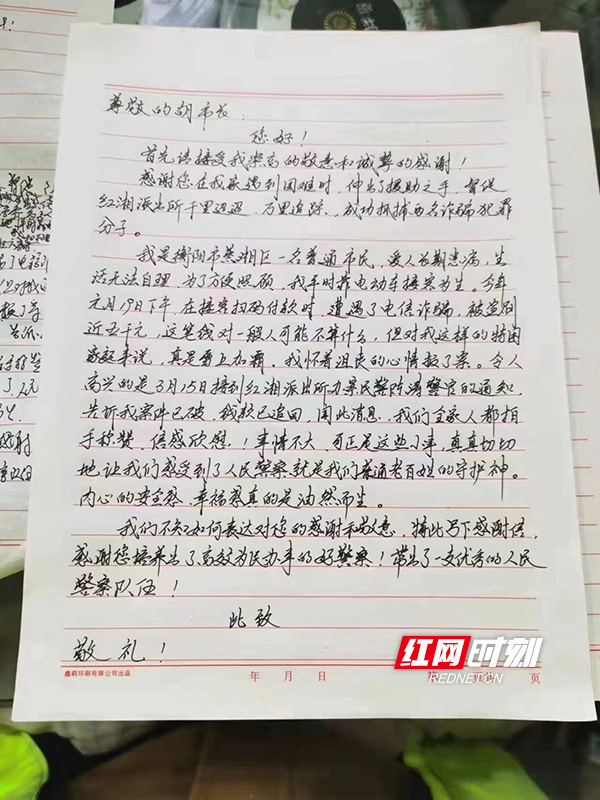 尊敬的胡市长:
您好!
首先请接受我崇高的敬意和诚挚的感谢!
感谢您在我家遇到困难时,伸出了援助之手,督促
红湘派出所千里迢迢,万里追踪,成功抓捕两名诈骗犯罪
分子。
我是衡阳市蒸湘区一名普通市民,爱人长期患病,生
活无法自理,为了方便照顾,我平时靠电动车接客为生。今年
元月19日下午,在接客扫码付款时,遭遇了电信诈骗,被盗刷
近五千元,这笔钱对一般人可能不算什么,但对我这样的特困
家庭来说,真是雪上加霜,我怀着沮丧的心情报了案。令人
高兴的是3月15日接到红湘派出所办案民警陈涛警官的通知,
告诉我案件已破,钱款已追回,闻此消息,我们全家人都拍
手称赞,倍感欣慰!事情不大,可正是这些小事,真真切切
地让我们感受到了人民警察就是我们普通老百姓的守护神。
内心的安全感、幸福感真的是油然而生。
我们不知如何表达对您的感谢和敬意,特此写下感谢信,
感谢您培养出了高效为民办事的好警察!带出了一支优秀的人民
警察队伍!
此致
敬礼!
年 月 日 页
鑫莉印刷有限公司出品
红网时刻
REDNET.CN